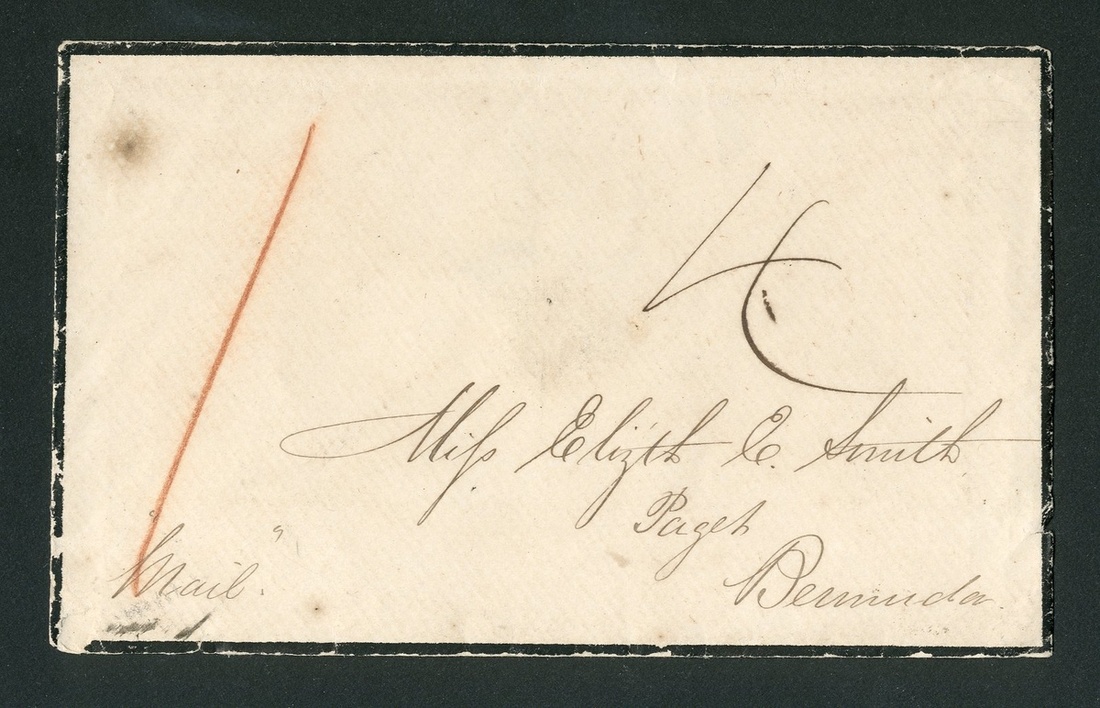 4
Miss Elizth E. Smith
Paget
Bermuda.
"Mail."